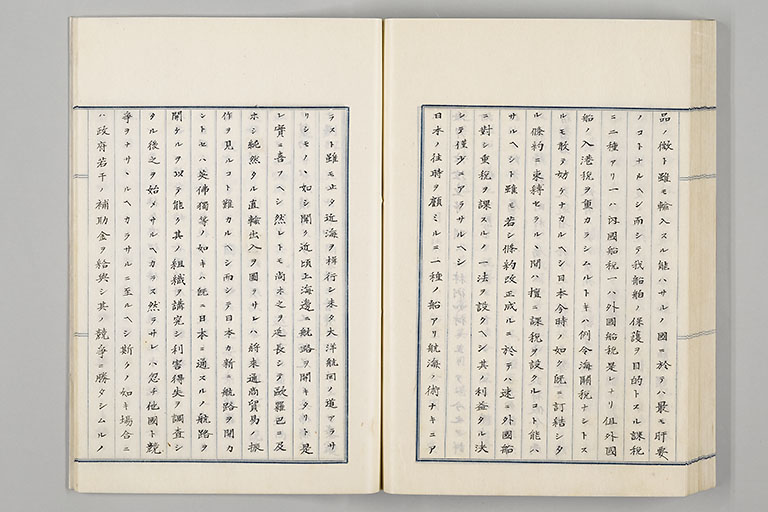 品ノ微ト雖モ輸入スル能ハサルノ國ニ於テハ最モ肝要
ノコトナルヘシ而シテ我船舶ノ保護ヲ目的トスル課税
ニ二種アリ一ハ内國船税一ハ外國船税是レナリ但外國
船ノ入港税ヲ重カラシムルトキハ例令海關税ナシトス
ルモ敢テ妨ケナカルヘシ日本今時ノ如ク既ニ訂結シタ
ル條約ニ束縛セラルヽ間ハ擅ニ課税ヲ設クルコト能ハ
サルヘシト雖モ若シ條約改正成ルニ於テハ速ニ外國船
ニ對シ重税ヲ課スルノ一法ヲ設クヘシ其ノ利益タル決
シテ僅少ニアラサルヘシ
日本ノ往時ヲ顧ミルニ一種ノ船アリ航海ノ術ナキニア
ラスト雖モ止タ近海ヲ航行シ未タ大洋航海ノ道アラサ
リシモノヽ如シ聞ク近頃上海邊ニ航路ヲ開キタリト是
レ實ニ喜フヘシ然レトモ尚ホ之ヲ延長シテ歐羅巴ニ及
ホシ純然タル直輸出入ヲ圖ラサレハ將来通商貿易ノ振
作ヲ見ルコト難カルヘシ而シテ日本カ新ニ航路ヲ開カ
ントセハ英佛獨等ノ如キハ既ニ日本ニ通スルノ航路ヲ
開ケルヲ以テ能ク其ノ組織ヲ講究シ利害得失ヲ調査シ
タル後之ヲ始メサルヘカラス然ラサレハ忽チ他國ト競
爭ヲナサヽルヘカラサルニ至ルヘシ斯クノ如キ場合ニ
ハ政府若干ノ補助金ヲ給與シ其ノ競爭ニ勝タシムルノ